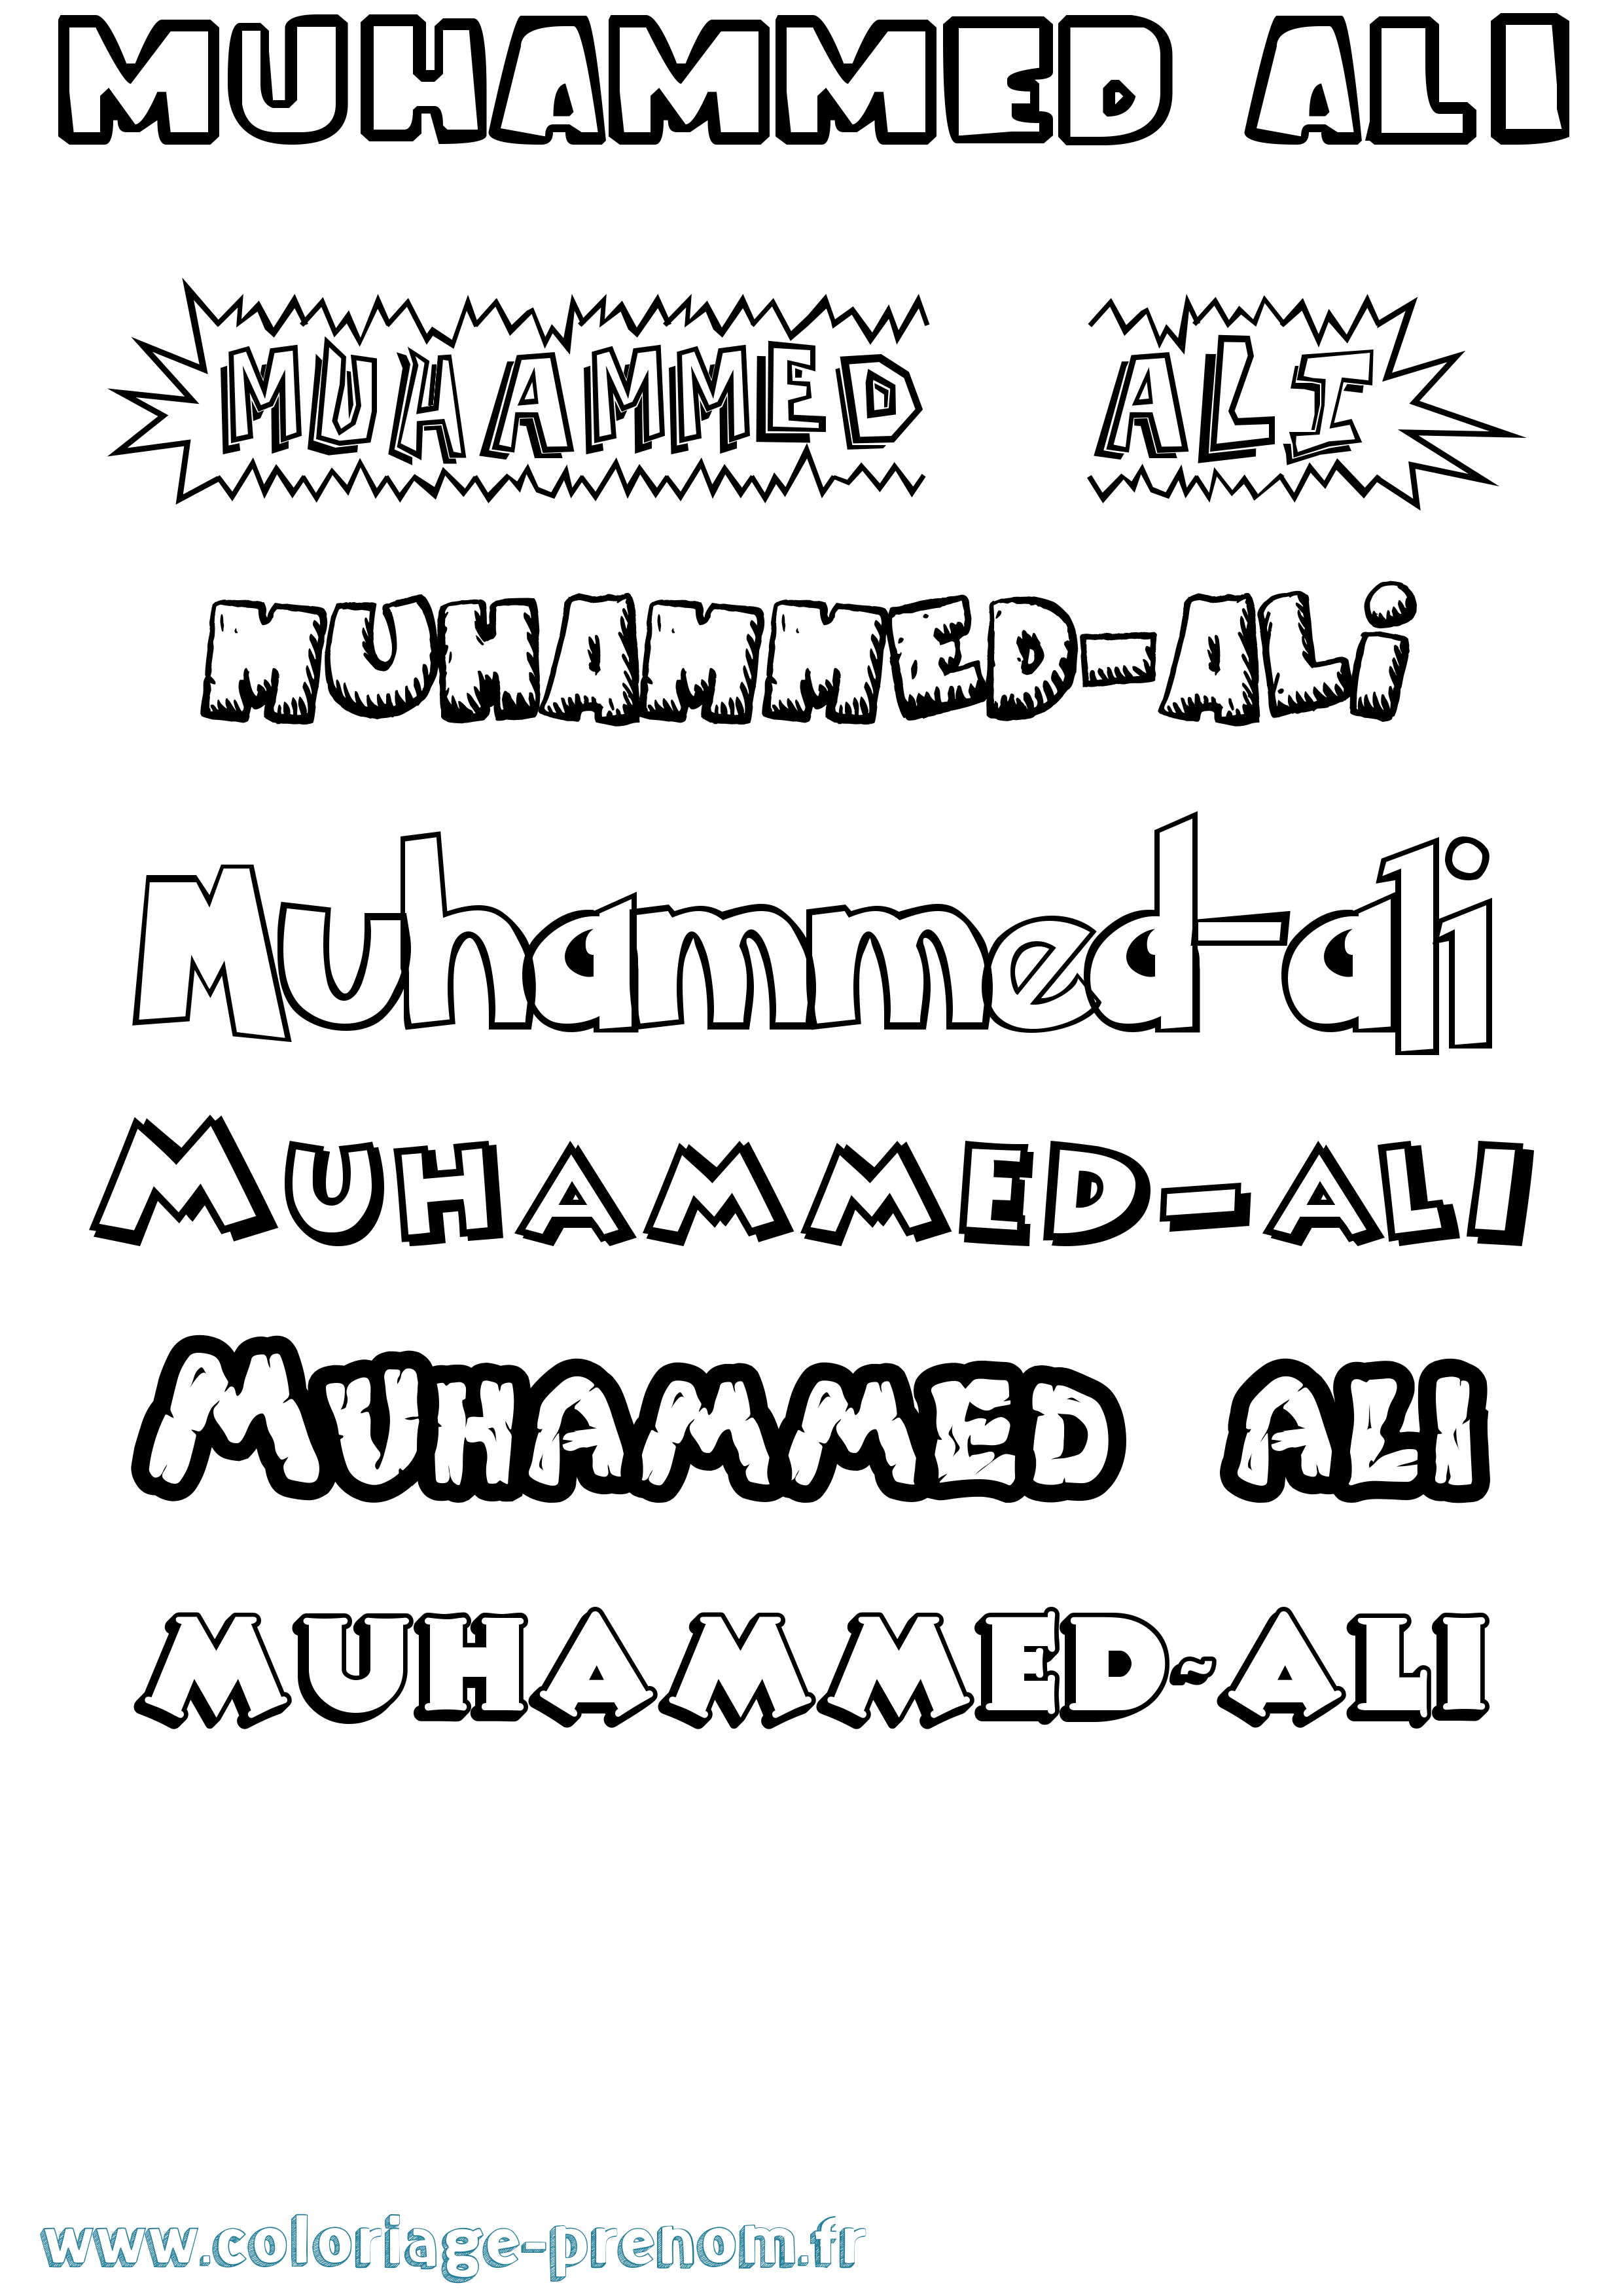 MUHAMMED ALI
MUHAMMED ALI
MUHAMMED-ALi
Muhammed-ali
MUHAMMED-ALI
MUHAMMED ALI
MUHAMMED~ALI
www.coloriage-prenom.fr